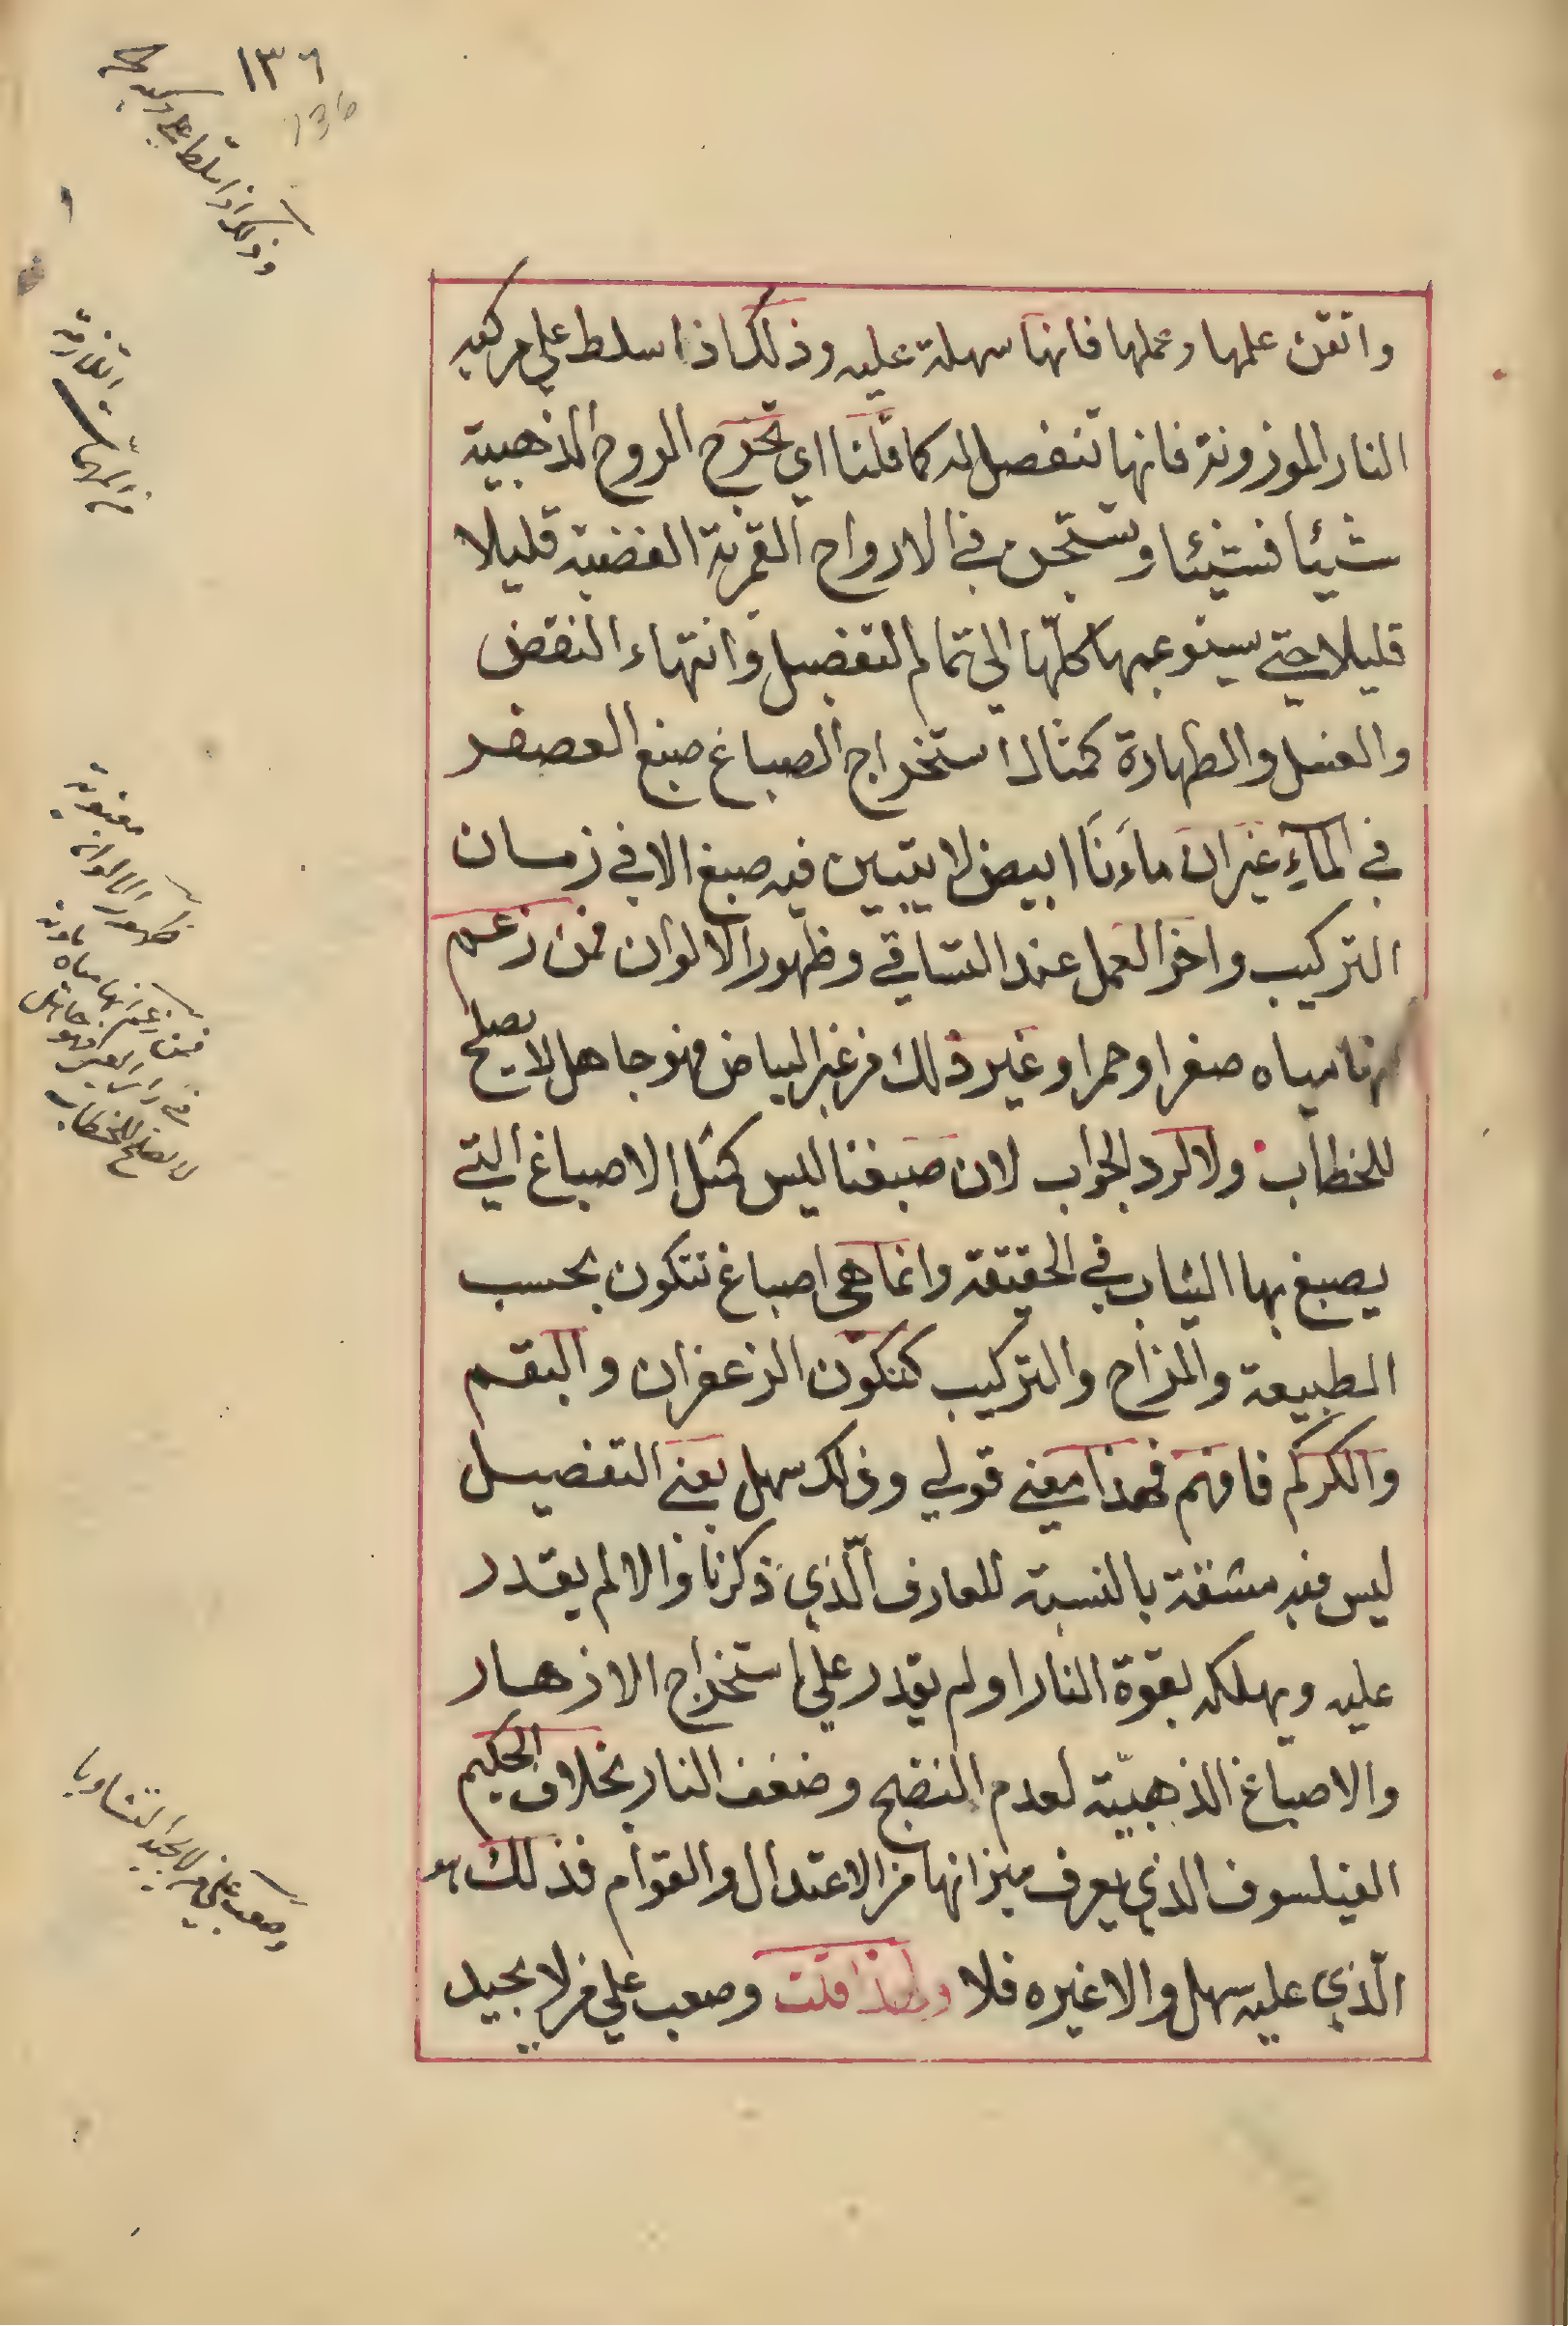 ١٣٦
136
واتقن علمها وعملها فانها سهلة عليه وذلك اذا سلط علي مركبه
النار الموزونة فانها تنفصل له كما قلنا اي تخرج الروح الذهبية
شيئا فشيئا وتستجن في الارواح القمرية الفضية قليلا
قليلا حتي يستوعبها كلّها الي تمام التفصيل وانتهاء النقض
والغسل والطهارة كمثال استخراج الصباغ صبغ العصفر
في المآءِ غير ان ماءَنَا ابيض لا يتبين فيه صبغ الا في زمان
التركيب واخر العمل عند التساقي وظهور الالوان فمن زعم
انها مياه صفر او حمر او غير ذلك من غير البياض فهو جاهل لا يصلح
للخطاب ولا لرد الجواب لان صبغنا ليس كمثل الاصباغ التي
يصبغ بها الثياب في الحقيقة وانما هي اصباغ تتكون بحسب
الطبيعة والمزاج والتركيب كتكوّن الزعفران والبقم
والكركم فافهم فهذا معني قولي وذلك سهل يعني التفصيل
ليس فيه مشقة بالنسبة للعارف الّذي ذكرنا والا لم يقدر
عليه ويهلكه بقوة النار او لم يقدر علي استخراج الازهار
والاصباغ الذهبيّة لعدم النضج وضعف النار بخلاف الحكيم
الفيلسوف الذي يعرف ميزانها من الاعتدال والقوام فذلك هو
الّذي عليه سهل والا غيره فلا ولهذا قلت وصعب علي من لا يجيد
وذلك اذا سلط علي مركبه
ظهور الالوان
فمن زعم انها مياه
لا يصلح للخطاب
وصعب علي من لا يجيد التشاويا